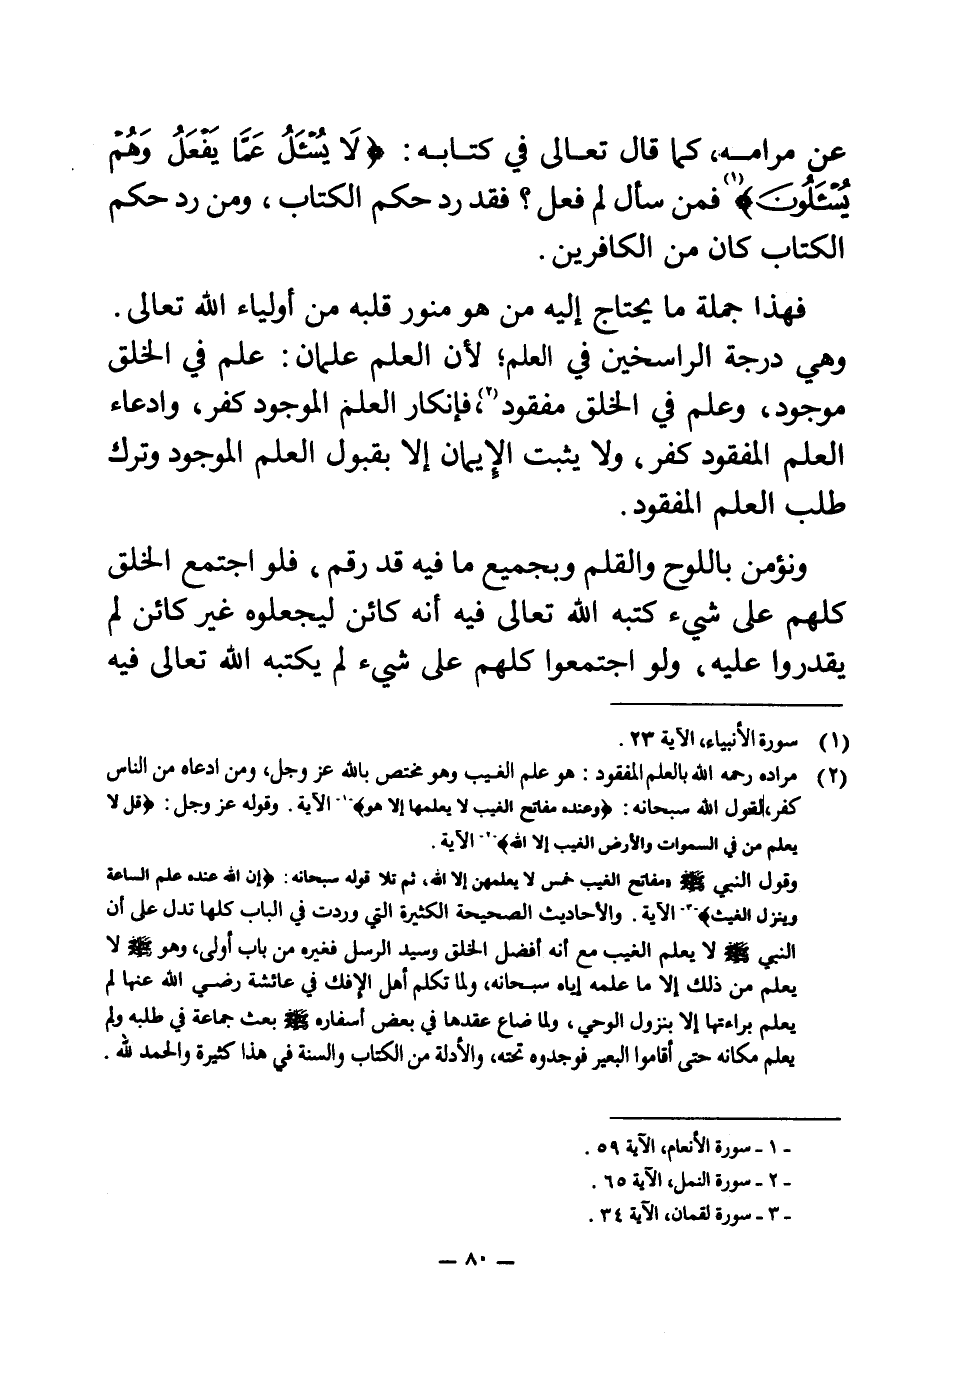 عن مرامـه، كما قال تعـالى في كتـابـه : ﴿لَا يُسْـَٔلُ عَمَّا يَفْعَلُ وَهُمْ
يُسْـَٔلُونَ﴾(١) فمن سأل لم فعل ؟ فقد رد حكم الكتاب ، ومن رد حكم
الكتاب كان من الكافرين .
فهذا جملة ما يحتاج إليه من هو منور قلبه من أولياء الله تعالى .
وهي درجة الراسخين في العلم؛ لأن العلم علمان : علم في الخلق
موجود، وعلم في الخلق مفقود(٢)، فإنكار العلم الموجود كفر، وادعاء
العلم المفقود كفر، ولا يثبت الإيمان إلا بقبول العلم الموجود وترك
طلب العلم المفقود .
ونؤمن باللوح والقلم وبجميع ما فيه قد رقم ، فلو اجتمع الخلق
كلهم على شيء كتبه الله تعالى فيه أنه كائن ليجعلوه غير كائن لم
يقدروا عليه، ولو اجتمعوا كلهم على شيء لم يكتبه الله تعالى فيه
(١) سورة الأنبياء، الآية ٢٣ .
(٢) مراده رحمه الله بالعلم المفقود : هو علم الغيب وهو مختص بالله عز وجل، ومن ادعاه من الناس
كفر، لقول الله سبحانه : ﴿وعنده مفاتح الغيب لا يعلمها إلا هو﴾-١- الآية . وقوله عز وجل : ﴿قل لا
يعلم من في السموات والأرض الغيب إلا الله﴾-٢- الآية .
وقول النبي ﷺ «مفاتح الغيب خمس لا يعلمهن إلا الله، ثم تلا قوله سبحانه : ﴿إن الله عنده علم الساعة
وينزل الغيث﴾-٣- الآية . والأحاديث الصحيحة الكثيرة التي وردت في الباب كلها تدل على أن
النبي ﷺ لا يعلم الغيب مع أنه أفضل الخلق وسيد الرسل فغيره من باب أولى، وهو ﷺ لا
يعلم من ذلك إلا ما علمه إياه سبحانه، ولما تكلم أهل الإفك في عائشة رضي الله عنها لم
يعلم براءتها إلا بنزول الوحي، ولما ضاع عقدها في بعض أسفاره ﷺ بعث جماعة في طلبه ولم
يعلم مكانه حتى أقاموا البعير فوجدوه تحته، والأدلة من الكتاب والسنة في هذا كثيرة والحمد لله .
- ١ - سورة الأنعام، الآية ٥٩ .
- ٢ - سورة النمل، الآية ٦٥ .
- ٣ - سورة لقمان، الآية ٣٤ .
— ٨٠ —